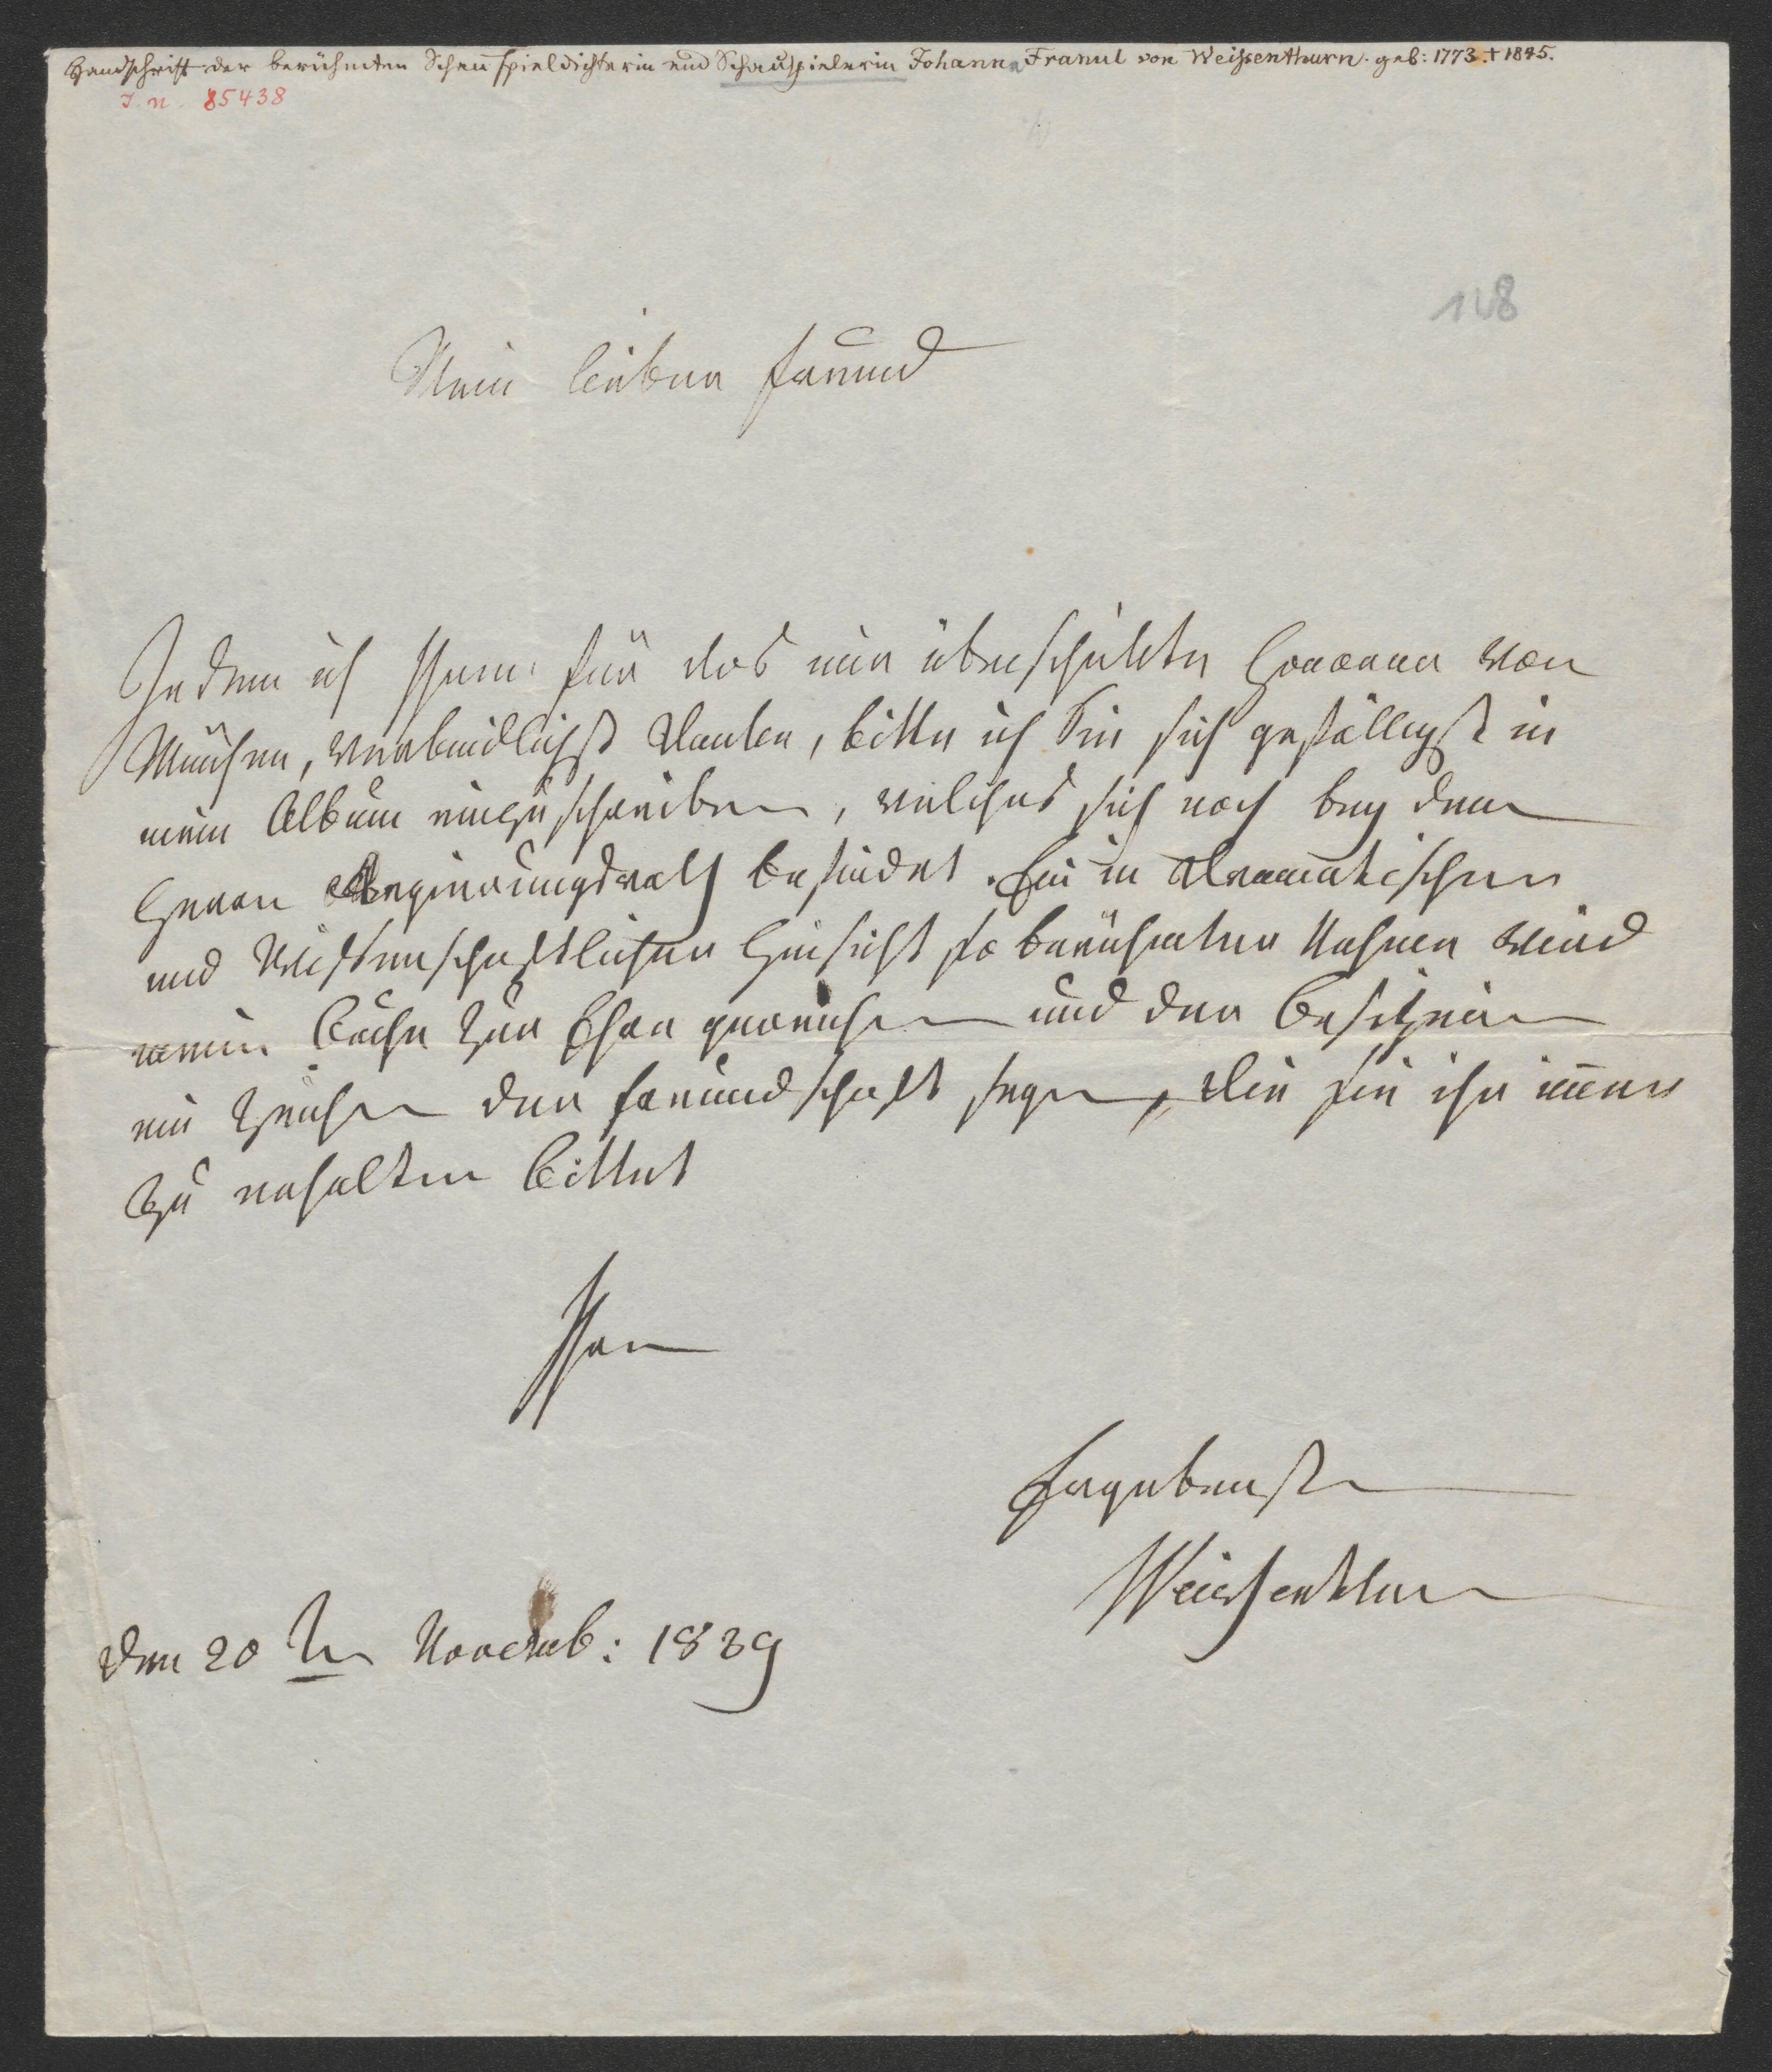 Handschrift der berühmten Schauspieldichterin und Schauspielerin Johanna Franul von Weißenthurn. geb: 1773. † 1845.
I. n. 85438
148
Mein lieber Freund
Indem ich Ihnen für das mir überschikte Honorar von
München, verbindlichst danke, bitte ich Sie sich gefälligst in
mein Album einzuschreiben, welches sich noch bey dem
Herrn Regierungsrath befindet. Ein in Dramatischer
und Wissenschaftlicher Hinsicht so berühmter Nahme wird
mein Buche zur Ehre gereichen und der Besitzerin
ein Zeichen der Freundschaft seyn, die Sie ihr immer
zu erhalten bittet
Ihre
Ergebenste
Weissenthurn
den 20 ten Novemb: 1839